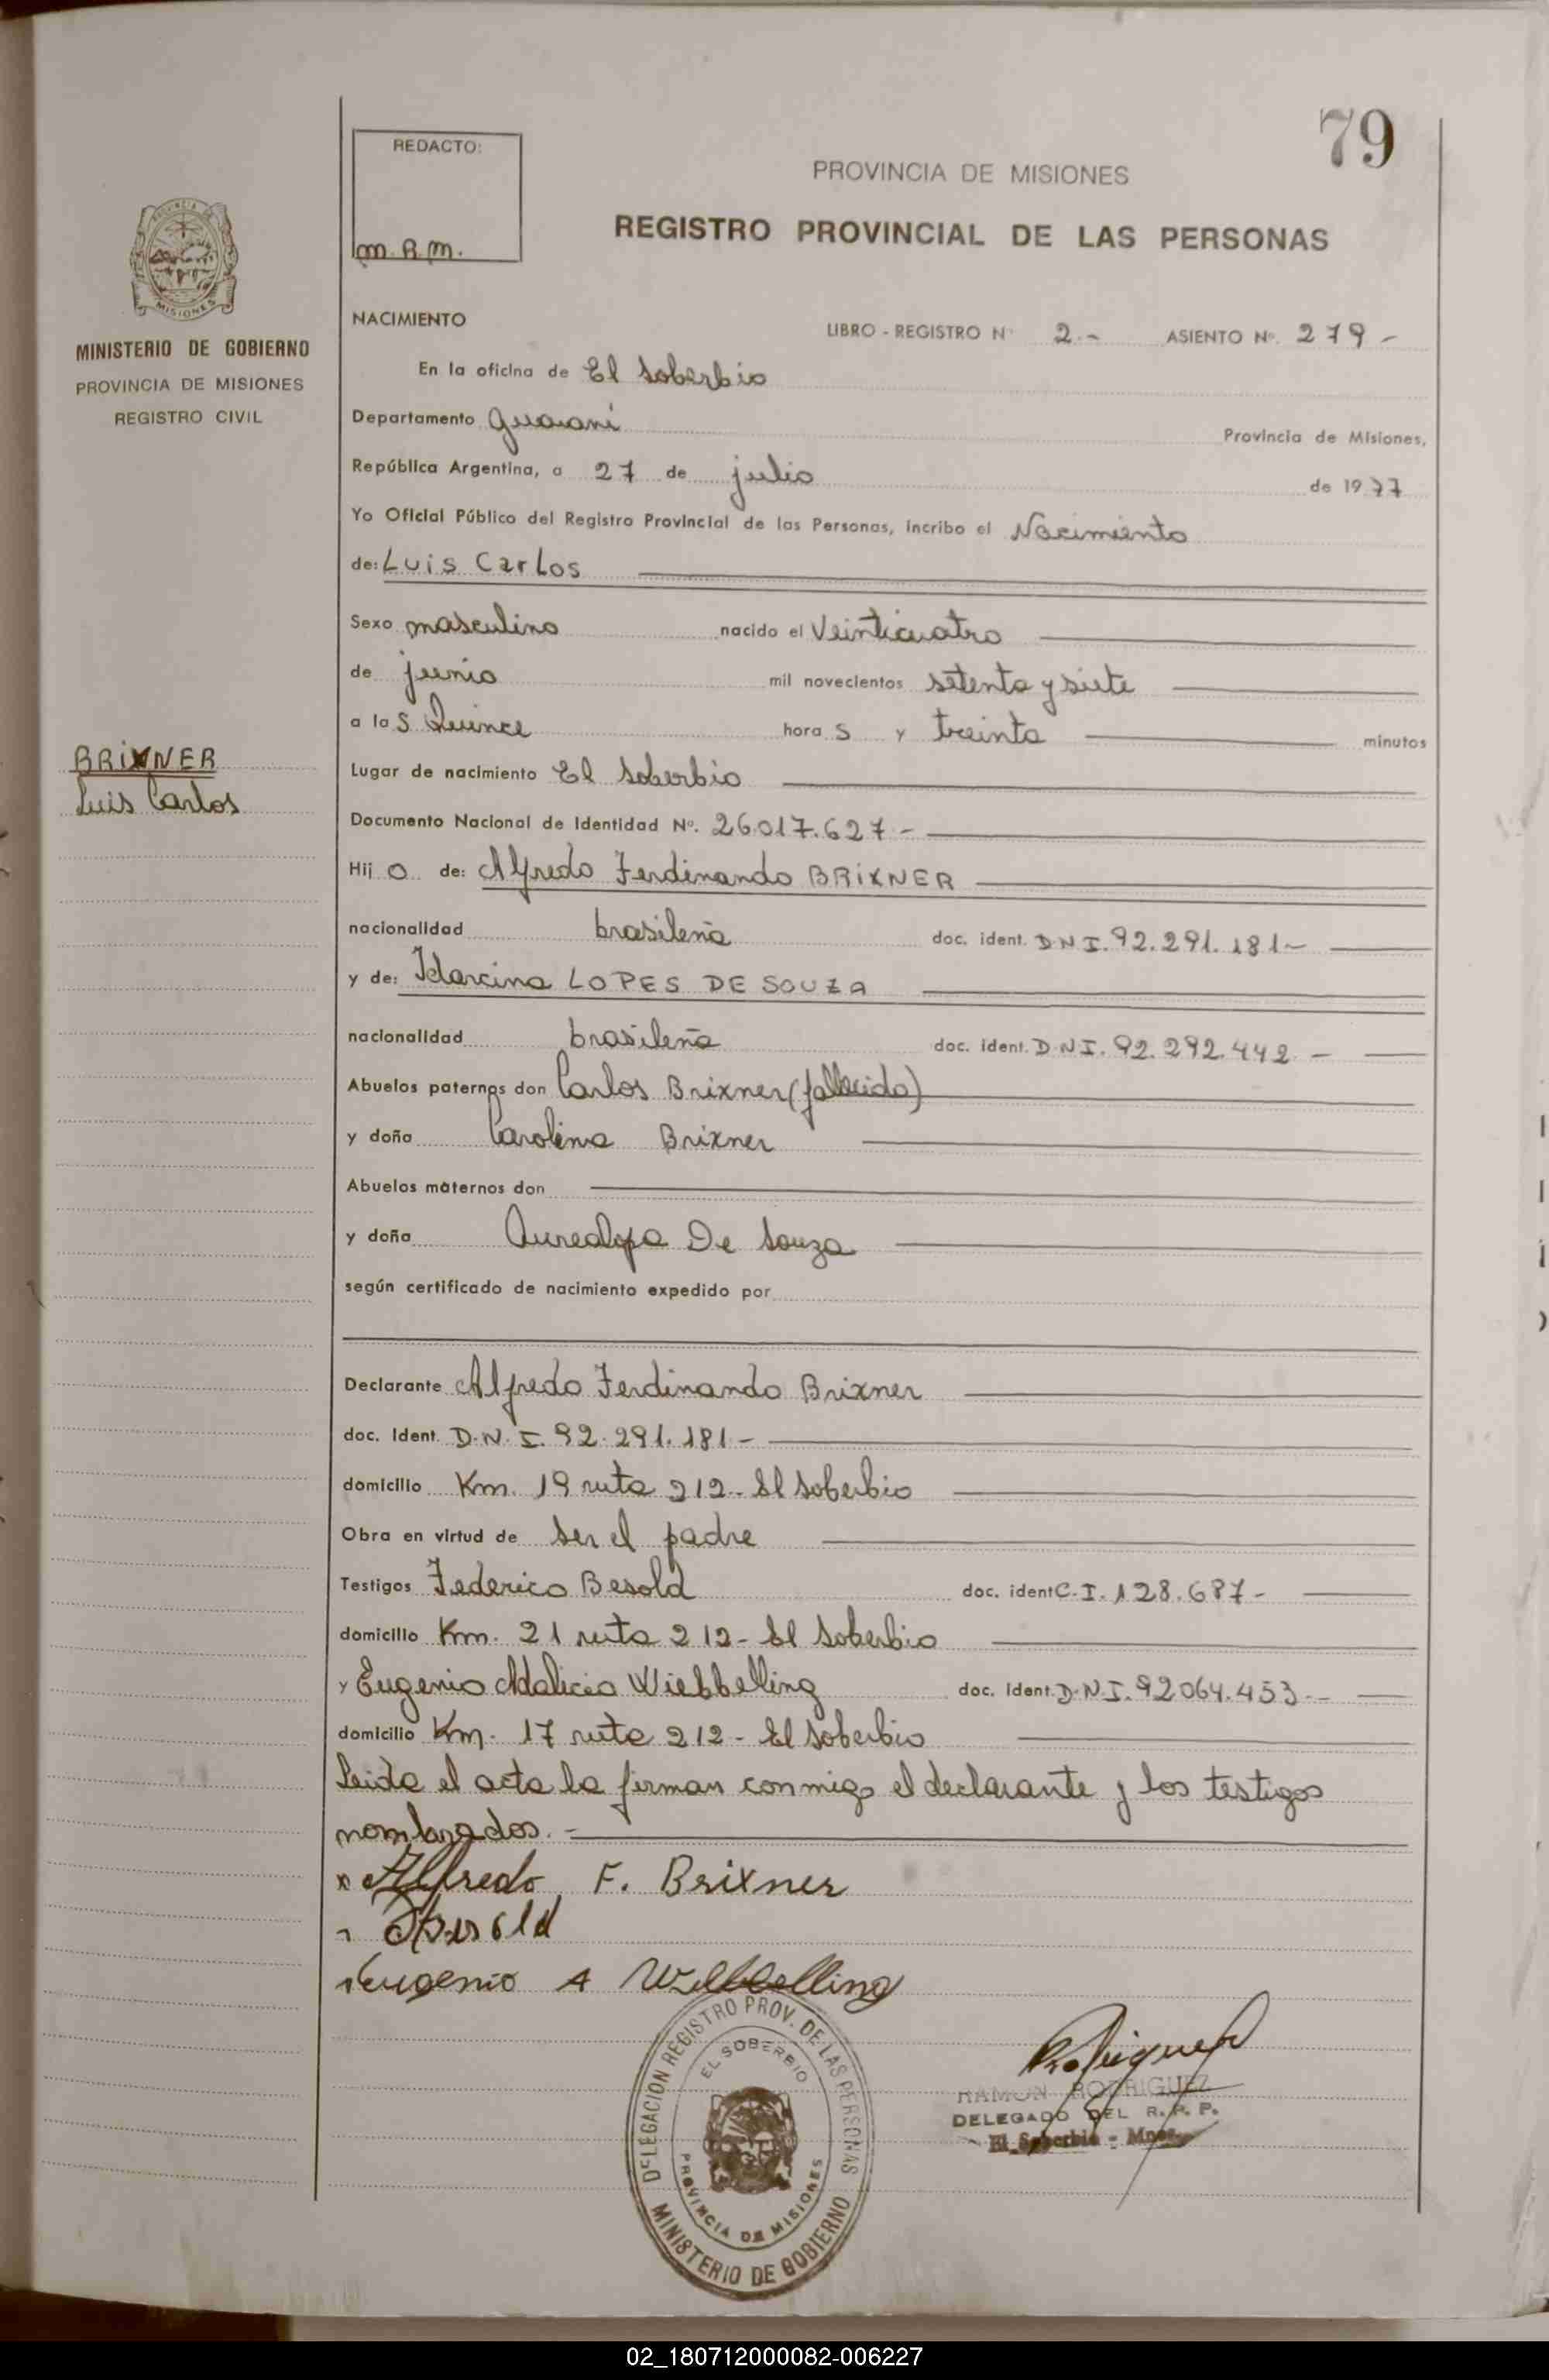 79
REDACTO:
m.R.m.
PROVINCIA DE MISIONES
REGISTRO PROVINCIAL DE LAS PERSONAS
MISIONES
MINISTERIO DE GOBIERNO
PROVINCIA DE MISIONES
REGISTRO CIVIL
BRIXNER
Luis Carlos
NACIMIENTO
LIBRO - REGISTRO Nº 2.- ASIENTO Nº. 279 -
En la oficina de El Soberbio
Departamento Guaraní Provincia de Misiones,
República Argentina, a 27 de julio de 1977
Yo Oficial Público del Registro Provincial de las Personas, incribo el Nacimiento
de: Luis Carlos
Sexo masculino nacido el Veinticuatro
de junio mil novecientos setenta y siete
a las Quince horas y treinta minutos
Lugar de nacimiento El Soberbio
Documento Nacional de Identidad Nº. 26.017.627 -
Hijo de: Alfredo Ferdinando BRIXNER
nacionalidad brasileña doc. ident. D N I. 92.291.181-
y de: Idarcina LOPES DE SOUZA
nacionalidad brasileña doc. ident. D.N.I. 92.292.442 -
Abuelos paternos don Carlos Brixner (fallecido)
y doña Carolina Brixner
Abuelos maternos don
y doña De Souza
según certificado de nacimiento expedido por
Declarante Alfredo Ferdinando Brixner
doc. Ident. D.N.I. 92.291.181 -
domicilio Km. 19 ruta 212 - El Soberbio
Obra en virtud de Ser el padre
Testigos Federico Besold doc. ident C.I. 128.687 -
domicilio Km. 21 ruta 212 - El Soberbio
y Eugenio Wiebbelling doc. Ident. D.N.I. 92064.453 -
domicilio Km. 17 ruta 212 - El Soberbio
Leida el acta la firman conmigo el declarante y los testigos
nombrados. -
Alfredo F. Brixner
Besold
Eugenio A Wiebbelling
DELEGACION REGISTRO PROV. DE LAS PERSONAS
EL SOBERBIO
PROVINCIA DE MISIONES
MINISTERIO DE GOBIERNO
Rodriguez
RAMON RODRIGUEZ
DELEGADO DEL R. P. P.
El Soberbio - Mnes.
02_180712000082-006227